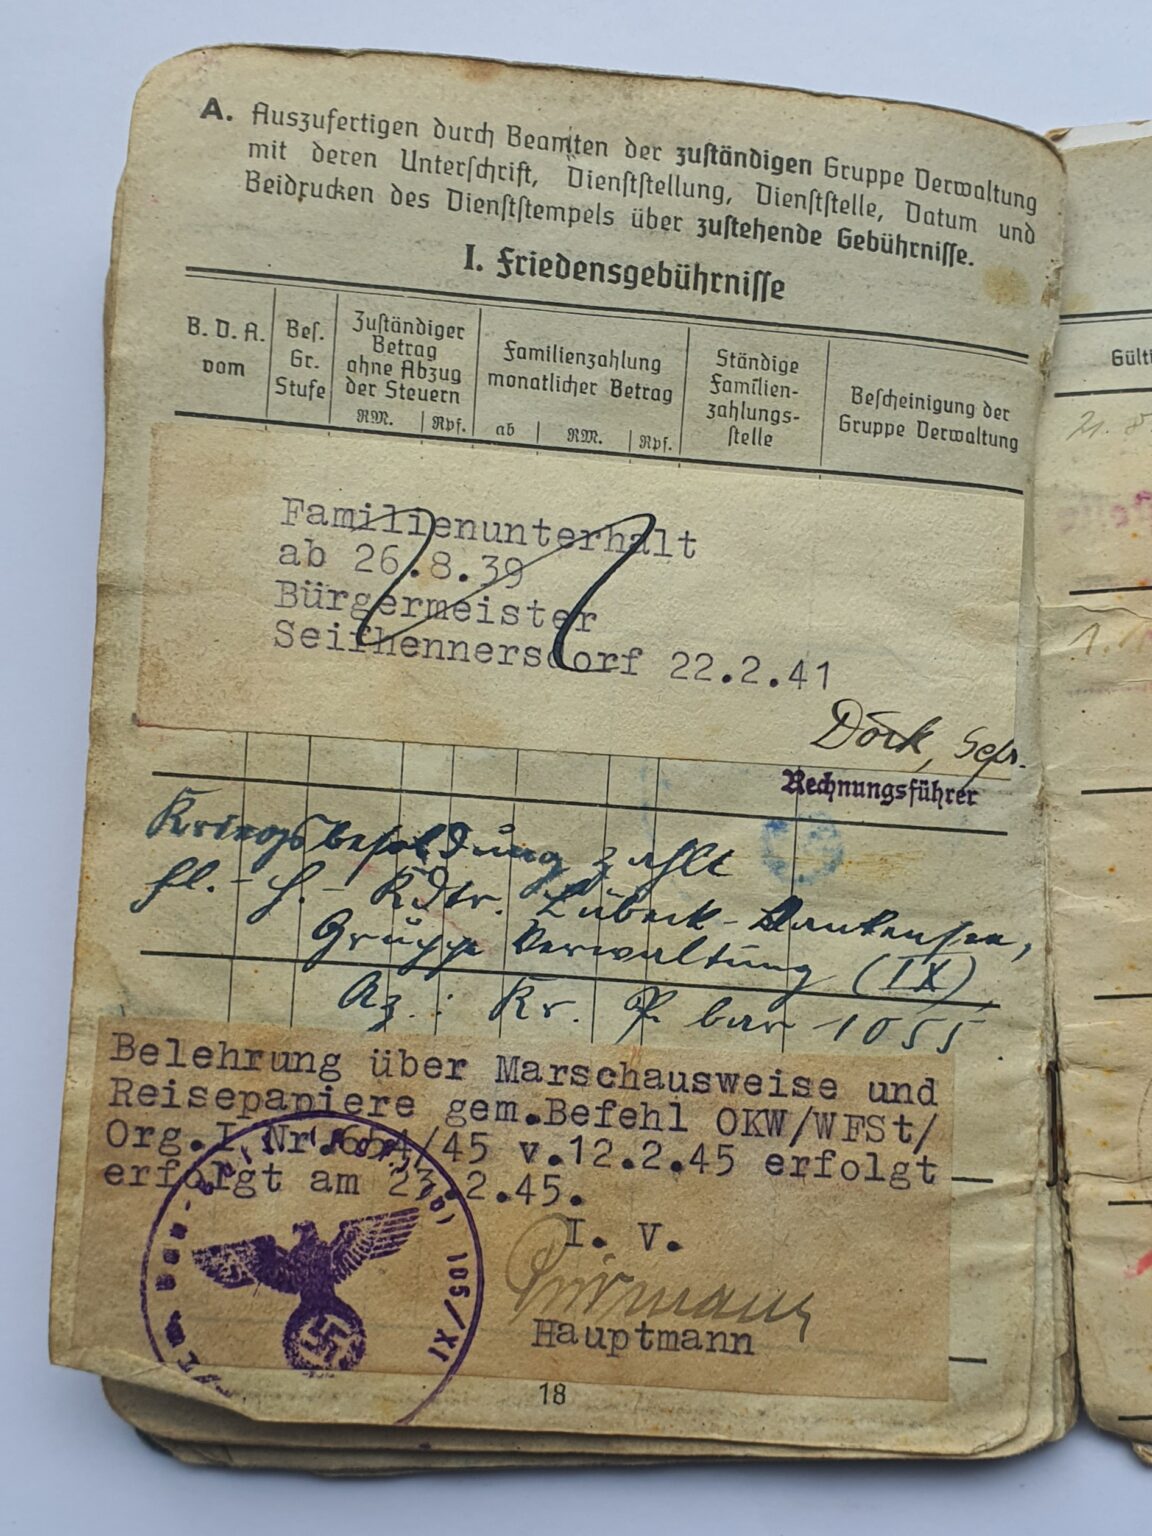 A. Auszufertigen durch Beamten der zuständigen Gruppe Verwaltung
mit deren Unterschrift, Dienststellung, Dienststelle, Datum und
Beidrucken des Dienststempels über zustehende Gebührnisse.
I. Friedensgebührnisse
B. D. A.
vom
Bes.
Gr.
Stufe
Zuständiger
Betrag
ohne Abzug
der Steuern
RM. Rpf.
Familienzahlung
monatlicher Betrag
ab RM. Rpf.
Ständige
Familien-
zahlungs-
stelle
Bescheinigung der
Gruppe Verwaltung
Familienunterhalt
ab 26.8.39
Bürgermeister
Seifhennersdorf 22.2.41
Rechnungsführer
Kriegsbesoldung zahlt
Fl.-H.-Kdtr. Lübeck-Blankensee,
Gruppe Verwaltung (IX)
Az.: Kr. bar 1055
Belehrung über Marschausweise und
Reisepapiere gem.Befehl OKW/WFSt/
Org.I Nr.654/45 v.12.2.45 erfolgt
erfolgt am 23.2.45.
I. V.
Hauptmann
105/XI
18
Gülti